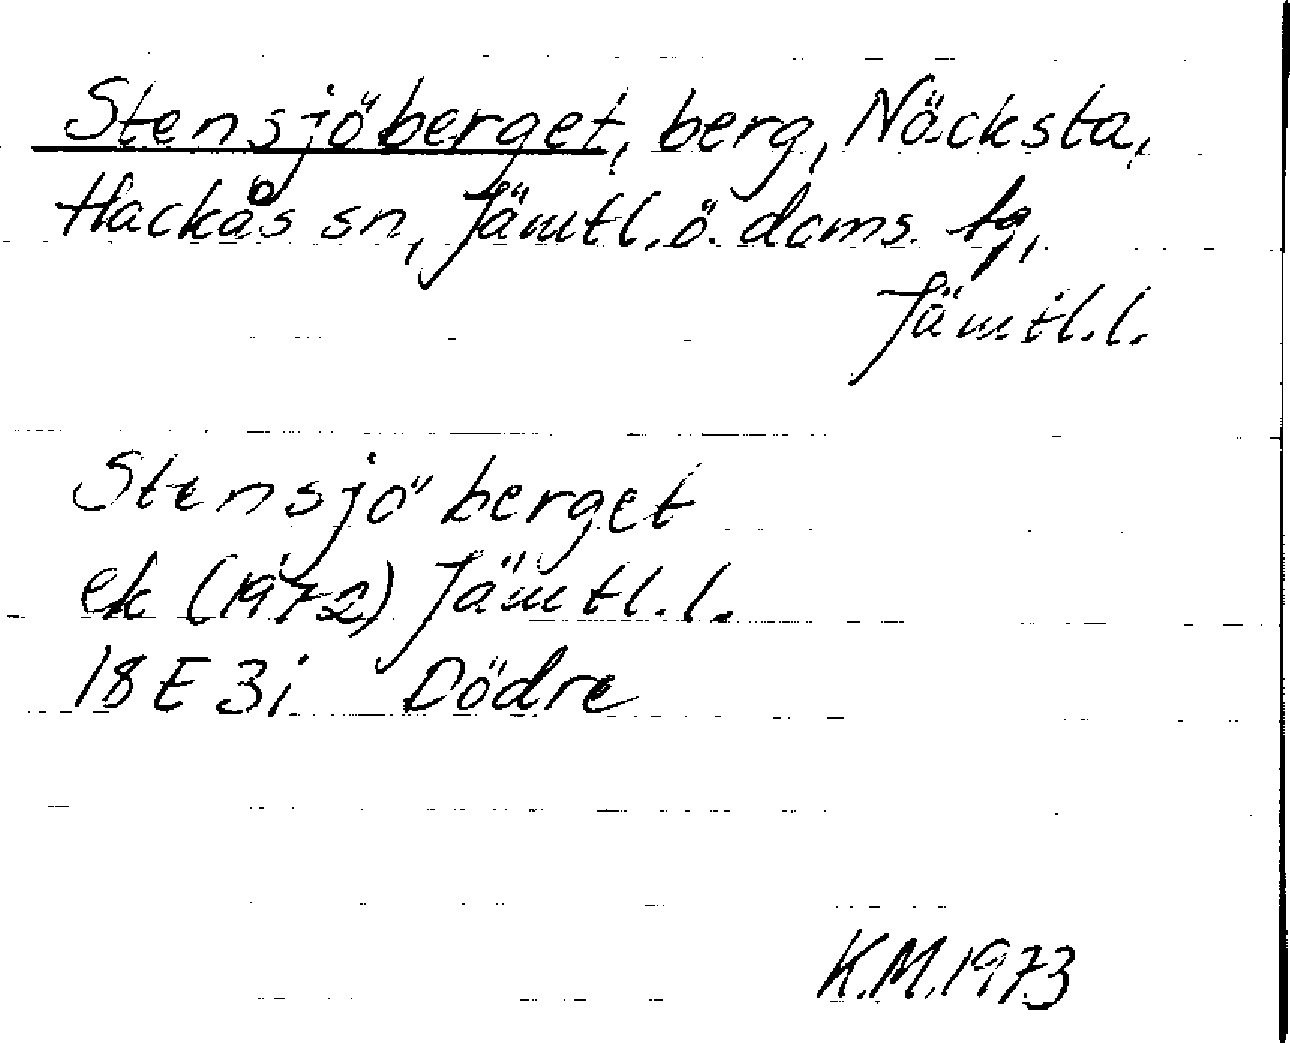 Stensjöberget, berg, Näcksta,
Hackås sn, Jämtl. ö. doms. tg,
Jämtl. l.
Stensjöberget
ek (1972) Jämtl. l.
18 E 3i Dödre
K.M. 1973